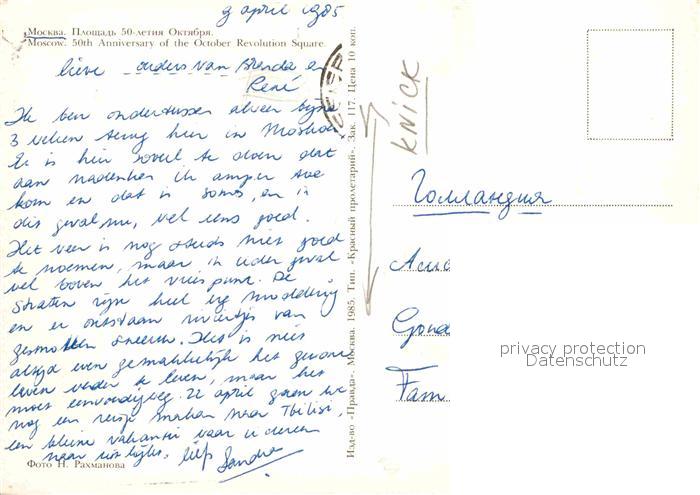 9 april 1985
Москва. Площадь 50-летия Октября.
Moscow. 50th Anniversary of the October Revolution Square.
lieve ouders van Brenda en
René
Ik ben ondertussen alweer bijna
3 weken terug hier in Moskou
Er is hier zoveel te doen dat
aan nadenken ik amper toe
kom en dat is soms, en in
dit geval nu, wel eens goed.
Het weer is nog steeds niet goed
te noemen, maar in ieder geval
wel boven het vriespunt. De
straten zijn heel erg modderig
en er ontstaan riviertjes van
gesmolten sneeuw. Het is niet
altijd even gemakkelijk het gewone
leven verder te leven, maar het
moet eenvoudigweg. 22 april gaan we
nog een reisje maken naar Tbilisi,
een kleine vakantie waar iedereen
naar uitkijkt. liefs Sandra
Фото Н. Рахманова
Изд-во «Правда». Москва. 1985. Тип. «Красный пролетарий». Зак. 117. Цена 10 коп.
KNICK
Голландия
Gouda
Fam
privacy protection
Datenschutz